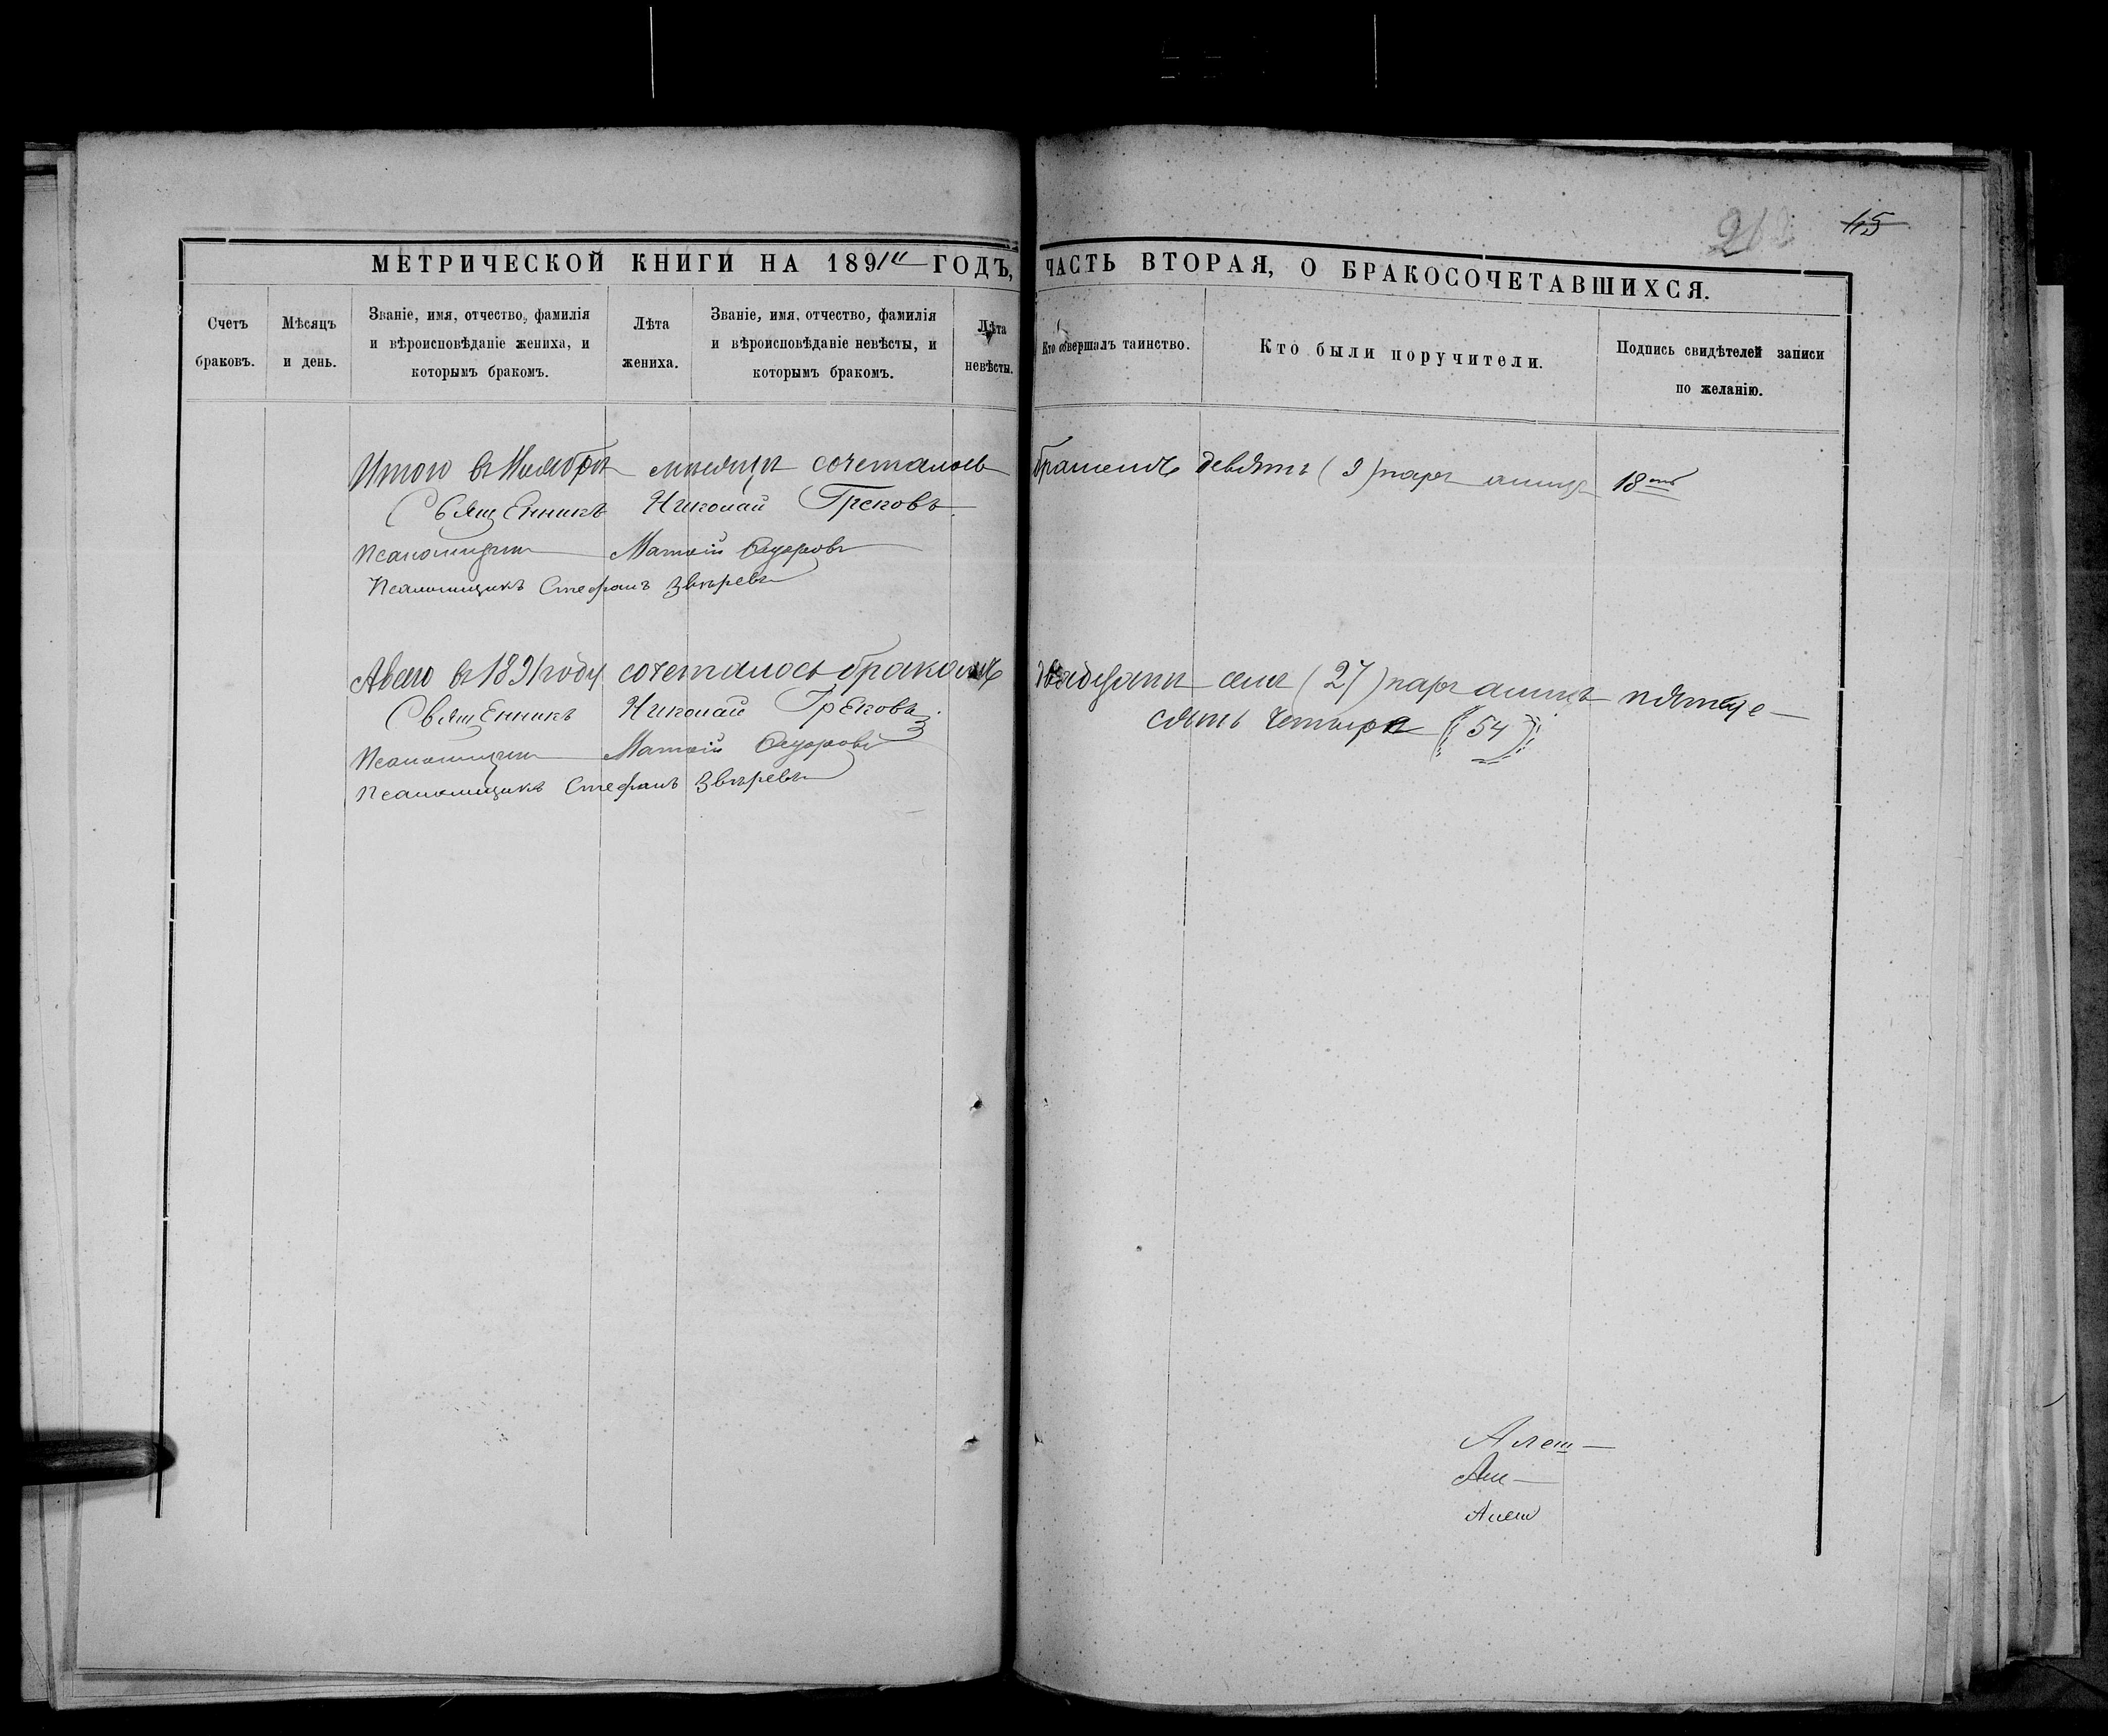 45
МЕТРИЧЕСКОЙ КНИГИ НА 1891й ГОДЪ, ЧАСТЬ ВТОРАЯ, О БРАКОСОЧЕТАВШИХСЯ.
Счетъ браковъ.
Мѣсяцъ и день.
Званіе, имя, отчество, фамилія и вѣроисповѣданіе жениха, и которымъ бракомъ.
Лѣта жениха.
Званіе, имя, отчество, фамилія и вѣроисповѣданіе невѣсты, и которымъ бракомъ.
Лѣта невѣсты.
Кто совершалъ таинство.
Кто были поручители.
Подпись свидѣтелей записи по желанію.
Итого въ Ноябрѣ мѣсяцѣ сочеталось бракомъ девять (9) паръ лицъ 18ть
Священникъ Николай Грековъ.
Псаломщикъ Матвій Ѳедоровъ
Псаломщикъ Стефанъ Звѣревъ
А всего въ 1891 году сочеталось бракомъ двадцать семь (27) паръ а лицъ пятьде-
сятъ четыре (54)
Священникъ Николай Грековъ.
Псаломщикъ Матвій Ѳедоровъ
Псаломщикъ Стефанъ Звѣревъ